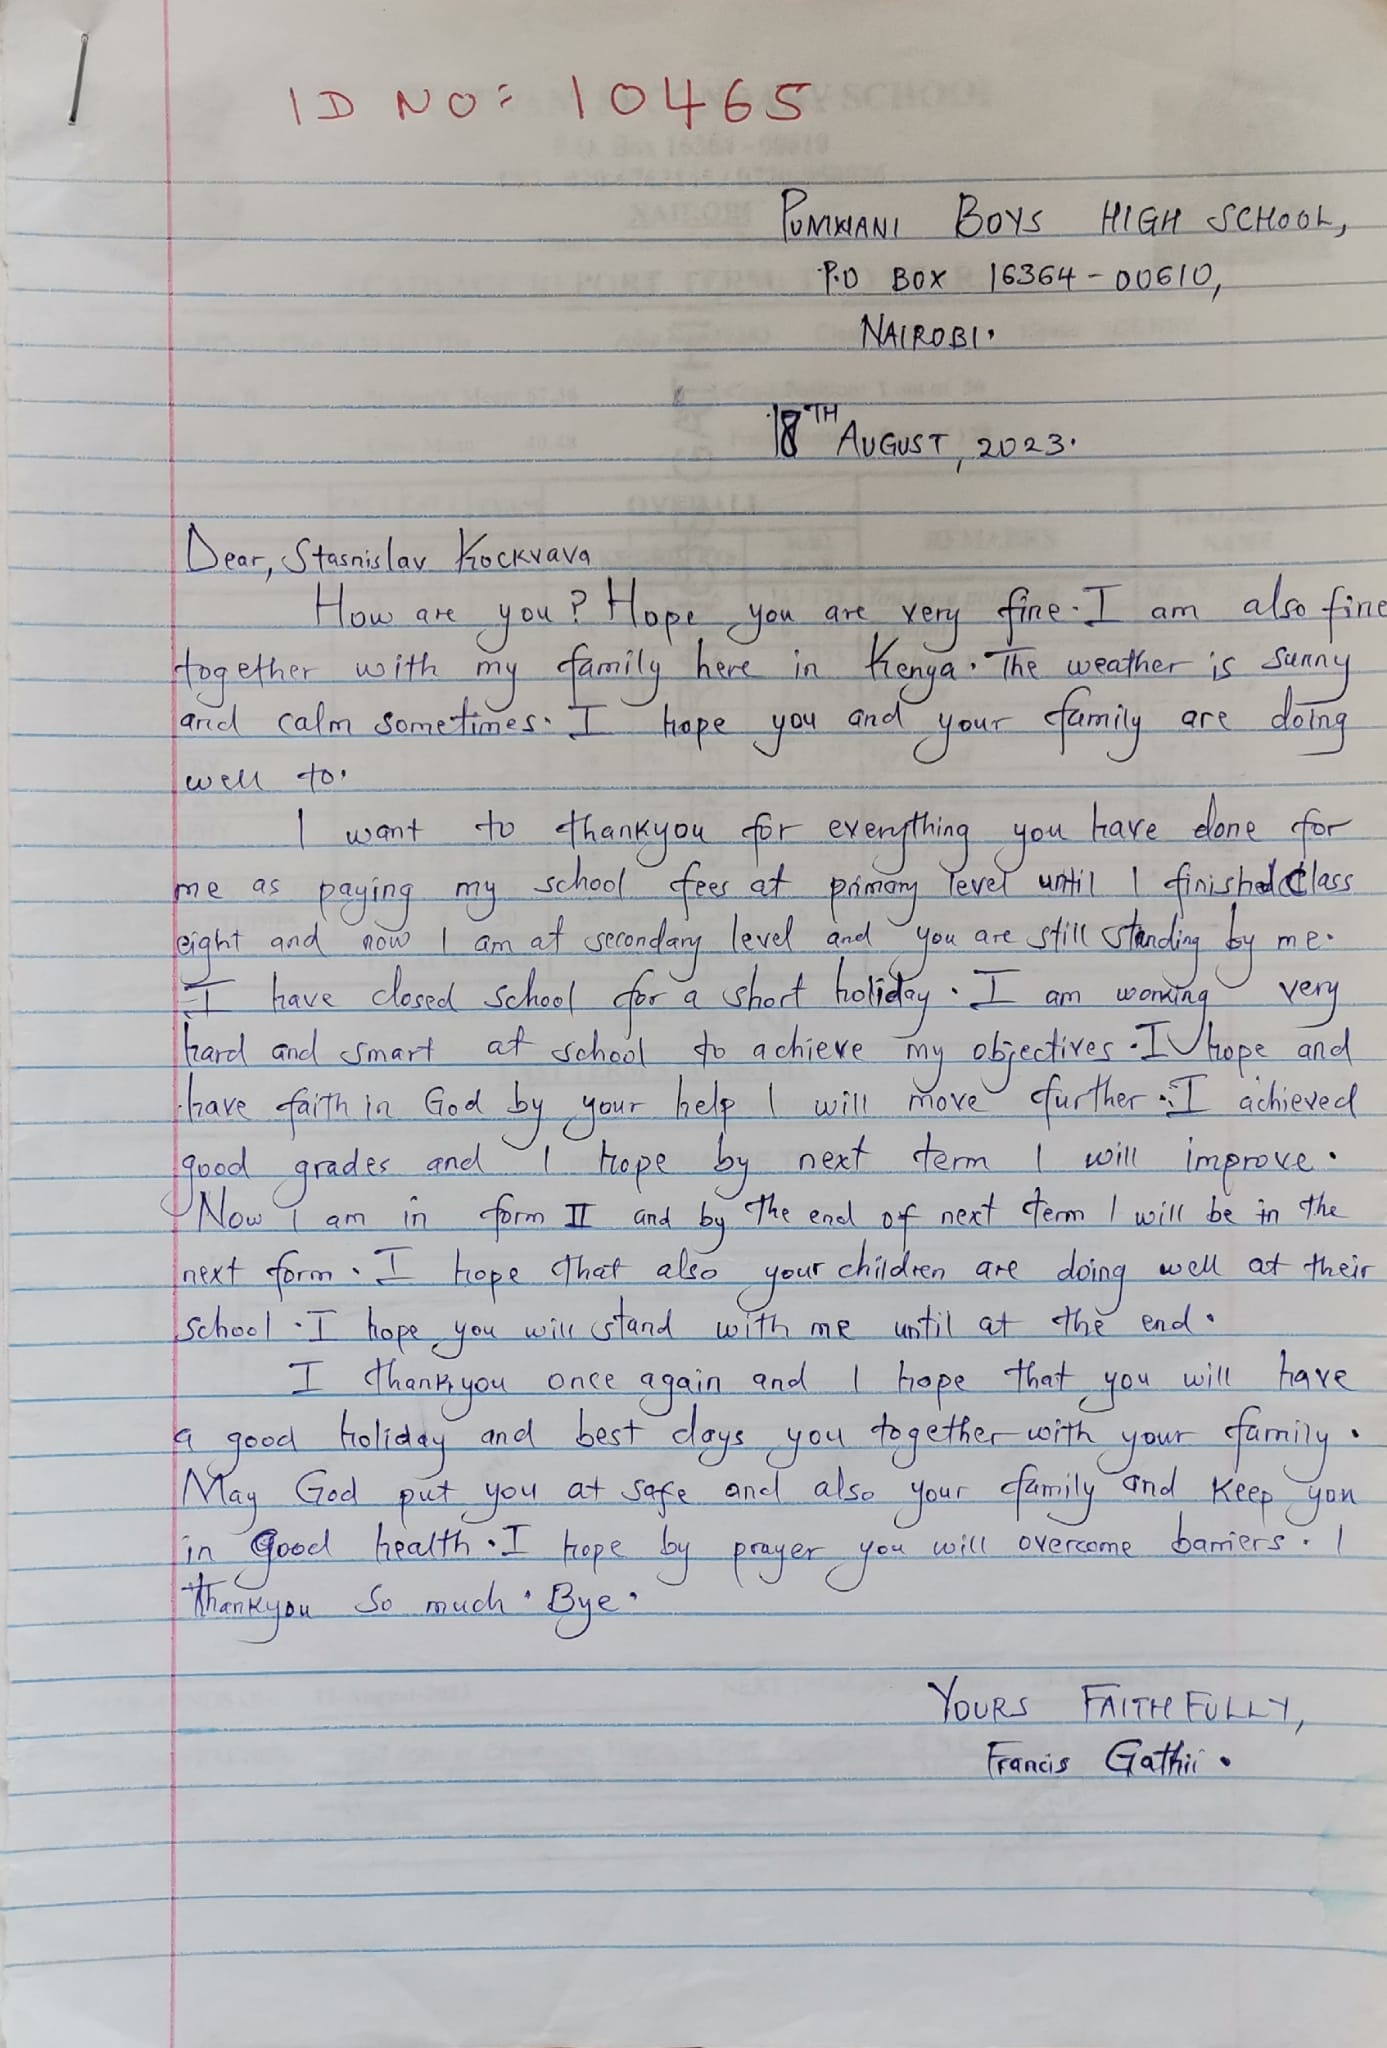 ID NO: 10465
PUMWANI BOYS HIGH SCHOOL,
P.O BOX 16364-00610,
NAIROBI.
18TH AUGUST, 2023.
Dear, Stasnislav Kockvava
How are you? Hope you are very fine. I am also fine
together with my family here in Kenya. The weather is sunny
and calm sometimes. I hope you and your family are doing
well to.
I want to thankyou for everything you have done for
me as paying my school fees at primary level until I finished Class
eight and now I am at secondary level and you are still standing by me.
I have closed school for a short holiday. I am working very
hard and smart at school to achieve my objectives. I hope and
have faith in God by your help I will move further. I achieved
good grades and I hope by next term I will improve.
Now I am in form II and by the end of next term I will be in the
next form. I hope that also your children are doing well at their
school. I hope you will stand with me until at the end.
I thankyou once again and I hope that you will have
a good holiday and best days you together with your family.
May God put you at safe and also your family and keep you
in good health. I hope by prayer you will overcome barriers. I
thankyou so much. Bye.
YOURS FAITHFULLY,
Francis Gathii.